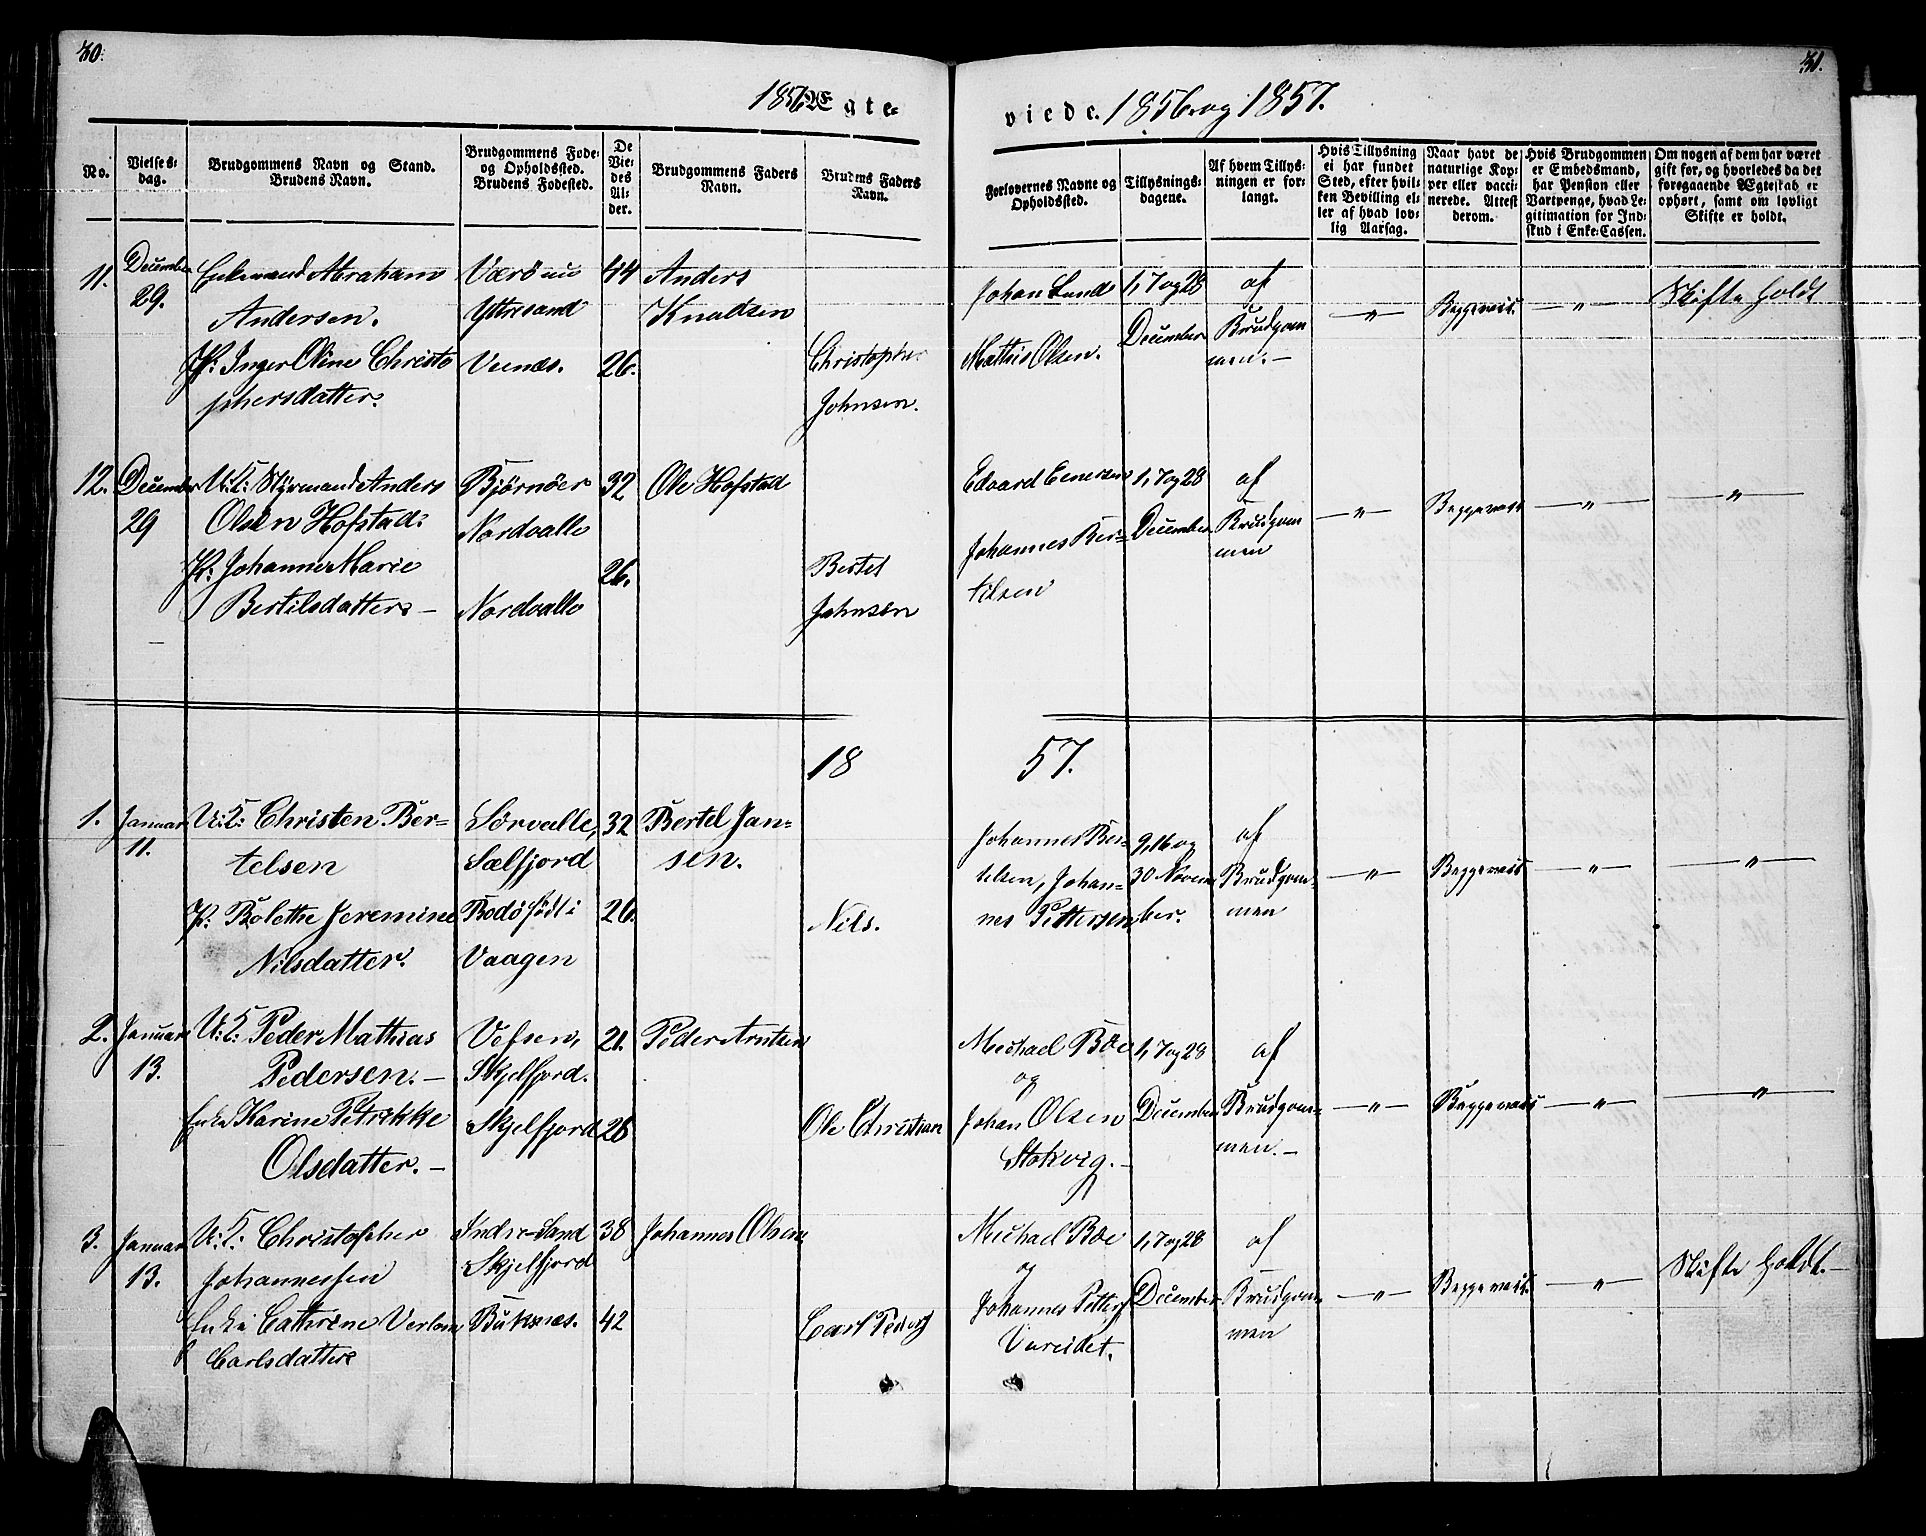 30.
31.
1856 Ægte-
viede. 1856 og 1857.
No.
Vielses-
dag.
Brudgommens Navn og Stand.
Brudens Navn.
Brudgommens Føde-
og Opholdssted.
Brudens Fødested.
De
Vie-
des
Al-
der.
Brudgommens Faders
Navn.
Brudens Faders
Navn.
Forlovernes Navne og
Opholdssted.
Tillysnings-
dagene.
Af hvem Tillys-
ningen er for-
langt.
Hvis Tillysning
ei har fundet
Sted, efter hvil-
ken Bevilling el-
ler af hvad lov-
lig Aarsag.
Naar havt de
naturlige Kop-
per eller vacci-
nerede. Attest
derom.
Hvis Brudgommen
er Embedsmand,
har Pension eller
Vartpenge, hvad Le-
gitimation for Ind-
skud i Enke-Cassen.
Om nogen af dem har været
gift før, og hvorledes da det
foregaaende Ægteskab er
ophørt, samt om lovligt
Skifte er holdt.
11.
December
29.
Enkemand Abraham
Andersen.
P: Inger Oline Christo
phersdatter.
Værø nu
Yttresand
Vernæs.
44
26.
Anders
Knudsen
Christopher
Johnsen.
Johan Lund
Mathis Olsen.
1, 7 og 28
December
af
Brudgom
men.—
—"—
Beggeveis.
—"—
Skifte holdt
12.
December
29
U:K: Styrmand Anders
Olsen Hofstad:
P: Johanne Marie
Bertilsdatter —
Bjørnøer
Nordvalle
Nordvalle
32
26.
Ole Hofstad
Bertel
Johnsen
Edvard Enersen
Johannes Ber-
tilsen
1, 7 og 28
December
af
Brudgom
men
—"—
Beggeveis
—"—
—"—
18 57.
1.
Januar
11.
U:K: Christen Ber-
telsen
P: Bolethe Jeremine
Nilsdatter.
Sørvalle,
Sælfjord
Bodø født i
Vaagen
32
26.
Bertel Jan-
sen.
Nils.
Johannes Ber-
telsen, Johan-
nes Pettersen
9, 16 og
30 Novem
ber.
af
Brudgom-
men
—"—
Beggeveis
—"—
—"—
2.
Januar
13.
U:K: Peder Mathias
Pedersen.—
Enke Karine Petrikke
Olsdatter.—
Vefsen,
Skjelfjord.
Skjelfjord
21.
26
Peder Arntsen
Ole Christian
Michael Boe
og
Johan Olsen
Stokvig.—
1, 7 og 28
December
af
Brudgom-
men.—
—"—
Beggeveis
—"—
—"—
3.
Januar
13.
U:K: Christopher
Johannessen
Enke Cathrine
Carlsdatter
Indre-Sand
Skjelfjord
Buksnæs.
38
42
Johannes Olsen
Carl Peders
Michael Boe
og
Johannes Petters
Vareidet.
1, 7 og 28
December
af
Brudgom-
men
—"—
Beggeveis.
—"—
Skifte holdt.—